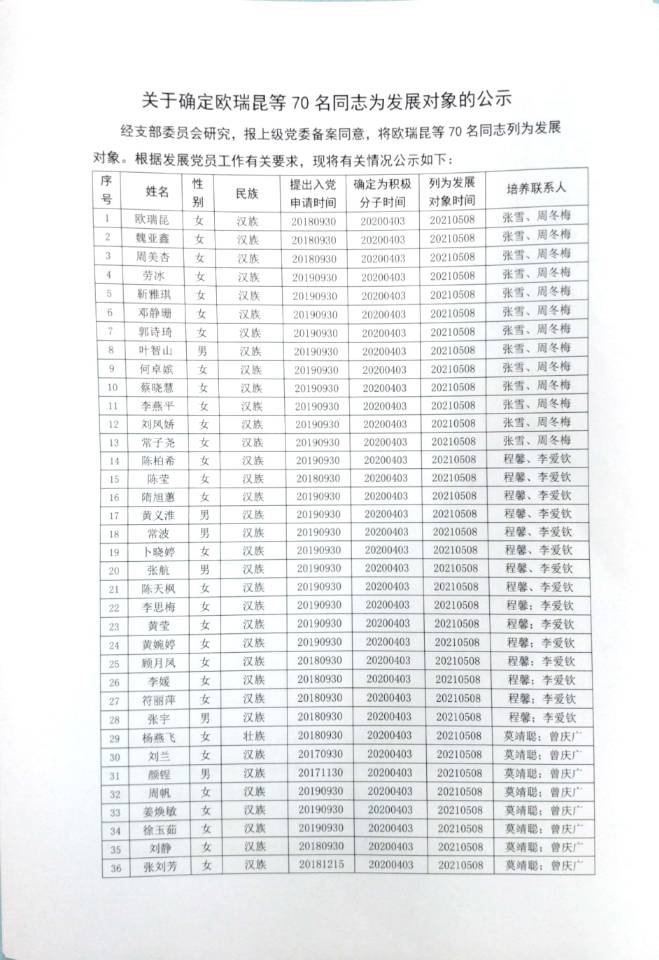 关于确定欧瑞昆等 70 名同志为发展对象的公示
经支部委员会研究，报上级党委备案同意，将欧瑞昆等 70 名同志列为发展
对象。根据发展党员工作有关要求，现将有关情况公示如下：
序号 姓名 性别 民族 提出入党申请时间 确定为积极分子时间 列为发展对象时间 培养联系人
1 欧瑞昆 女 汉族 20180930 20200403 20210508 张雪、周冬梅
2 魏亚鑫 女 汉族 20180930 20200403 20210508 张雪、周冬梅
3 周美杏 女 汉族 20180930 20200403 20210508 张雪、周冬梅
4 劳冰 女 汉族 20190930 20200403 20210508 张雪、周冬梅
5 靳雅琪 女 汉族 20190930 20200403 20210508 张雪、周冬梅
6 邓静珊 女 汉族 20190930 20200403 20210508 张雪、周冬梅
7 郭诗琦 女 汉族 20190930 20200403 20210508 张雪、周冬梅
8 叶智山 男 汉族 20190930 20200403 20210508 张雪、周冬梅
9 何卓嫔 女 汉族 20190930 20200403 20210508 张雪、周冬梅
10 蔡晓慧 女 汉族 20190930 20200403 20210508 张雪、周冬梅
11 李燕平 女 汉族 20190930 20200403 20210508 张雪、周冬梅
12 刘凤娇 女 汉族 20190930 20200403 20210508 张雪、周冬梅
13 常子尧 女 汉族 20190930 20200403 20210508 张雪、周冬梅
14 陈柏希 女 汉族 20190930 20200403 20210508 程馨、李爱钦
15 陈莹 女 汉族 20180930 20200403 20210508 程馨、李爱钦
16 隋旭蕙 女 汉族 20190930 20200403 20210508 程馨、李爱钦
17 黄义淮 男 汉族 20190930 20200403 20210508 程馨、李爱钦
18 常波 男 汉族 20190930 20200403 20210508 程馨、李爱钦
19 卜晓婷 女 汉族 20190930 20200403 20210508 程馨、李爱钦
20 张航 男 汉族 20190930 20200403 20210508 程馨、李爱钦
21 陈天枫 女 汉族 20190930 20200403 20210508 程馨、李爱钦
22 李思梅 女 汉族 20190930 20200403 20210508 程馨；李爱钦
23 黄莹 女 汉族 20190930 20200403 20210508 程馨；李爱钦
24 黄婉婷 女 汉族 20190930 20200403 20210508 程馨；李爱钦
25 顾月凤 女 汉族 20180930 20200403 20210508 程馨；李爱钦
26 李媛 女 汉族 20180930 20200403 20210508 程馨；李爱钦
27 符丽萍 女 汉族 20180930 20200403 20210508 程馨；李爱钦
28 张宇 男 汉族 20180930 20200403 20210508 程馨；李爱钦
29 杨燕飞 女 壮族 20180930 20200403 20210508 莫靖聪；曾庆广
30 刘兰 女 汉族 20170930 20200403 20210508 莫靖聪；曾庆广
31 颜锃 男 汉族 20171130 20200403 20210508 莫靖聪；曾庆广
32 周帆 女 汉族 20190930 20200403 20210508 莫靖聪；曾庆广
33 姜焕敏 女 汉族 20190930 20200403 20210508 莫靖聪；曾庆广
34 徐玉茹 女 汉族 20190930 20200403 20210508 莫靖聪；曾庆广
35 刘静 女 汉族 20180930 20200403 20210508 莫靖聪；曾庆广
36 张刘芳 女 汉族 20181215 20200403 20210508 莫靖聪；曾庆广